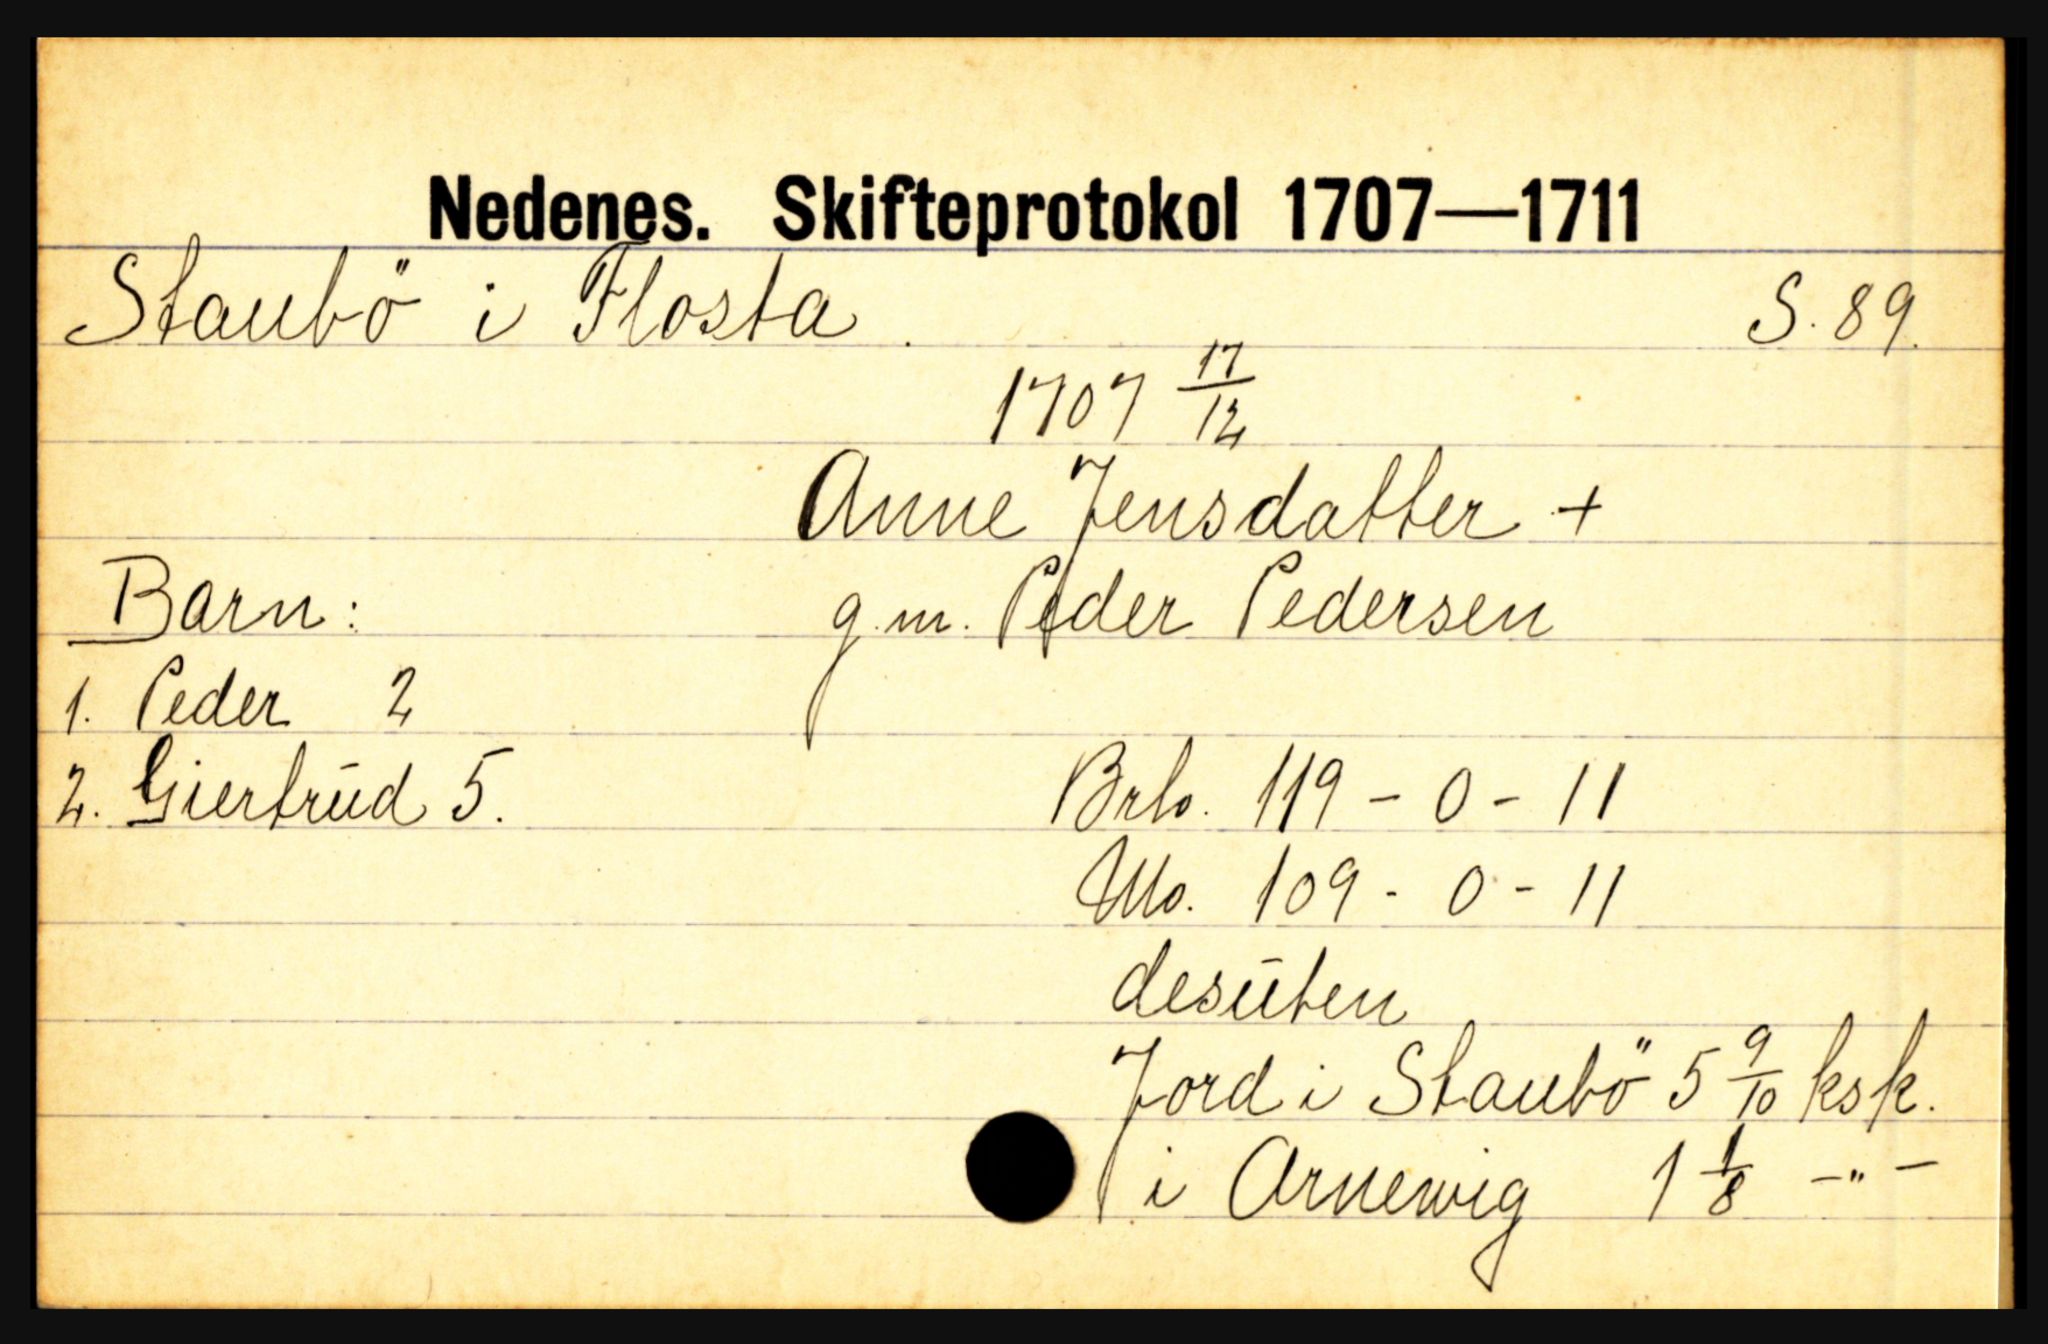 Nedenes. Skifteprotokol 1707—1711
Staubö i Flosta. S. 89.
1707 17/12
Anne Jensdatter +
Barn: g.m. Peder Pedersen
1. Peder 2
2. Giertrud 5. Brto. 119 - 0 - 11
Nto. 109 - 0 - 11
desuten
Jord i Staubö 5 9/10 ksk.
i Arnewig 1 1/8 -"-